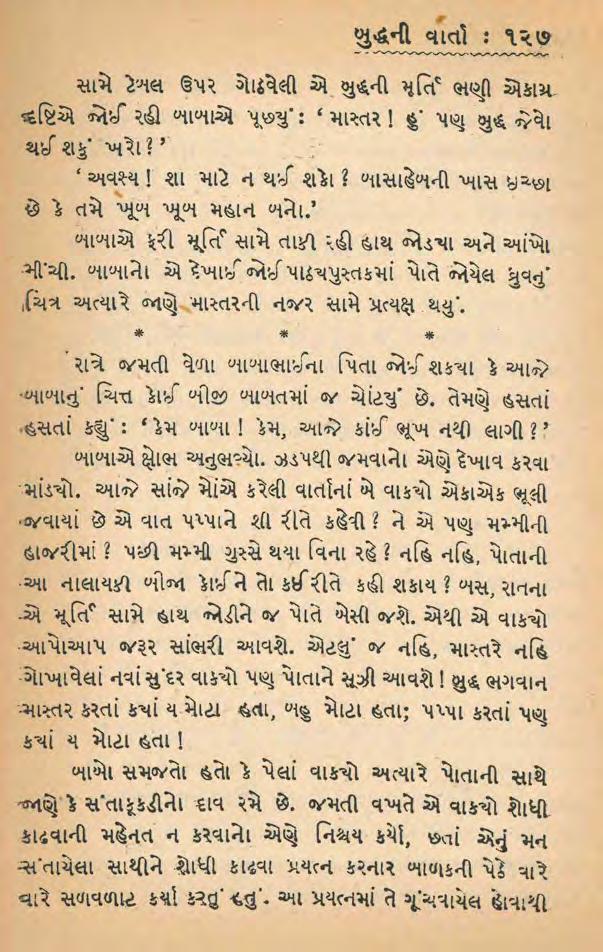 બુદ્ધની વાર્તા : ૧૨૭
સામે ટેબલ ઉપર ગોઠવેલી એ બુદ્ધની મૂર્તિ ભણી એકાગ્ર
દૃષ્ટિએ જોઈ રહી બાબાએ પૂછયું : ‘ માસ્તર ! હું પણ બુદ્ધ જેવો
થઈ શકું ખરો ? ’
‘ અવશ્ય ! શા માટે ન થઈ શકો ? બાસાહેબની ખાસ ઇચ્છા
છે કે તમે ખૂબ ખૂબ મહાન બનો.’
બાબાએ ફરી મૂર્તિ સામે તાકી રહી હાથ જોડયા અને આંખો
મીંચી. બાબાનો એ દેખાઈ જોઈ પાઠયપુસ્તકમાં પોતે જોયેલ ધ્રુવનું
ચિત્ર અત્યારે જાણે માસ્તરની નજર સામે પ્રત્યક્ષ થયું.
* * *
રાત્રે જમતી વેળા બાબાભાઈના પિતા જોઈ શકયા કે આજે
બાબાનું ચિત્ત કોઈ બીજી બાબતમાં જ ચોંટયું છે. તેમણે હસતાં
હસતાં કહ્યું : ‘ કેમ બાબા ! કેમ, આજે કાંઈ ભૂખ નથી લાગી ? ’
બાબાએ ક્ષોભ અનુભવ્યો. ઝડપથી જમવાનો એણે દેખાવ કરવા
માંડયો. આજે સાંજે મોંએ કરેલી વાર્તાનાં બે વાકયો એકાએક ભૂલી
જવાયાં છે એ વાત પપ્પાને શી રીતે કહેવી ? ને એ પણ મમ્મીની
હાજરીમાં ? પછી મમ્મી ગુસ્સે થયા વિના રહે ? નહિ નહિ, પોતાની
આ નાલાયકી બીજા કોઈ ને તો કઈ રીતે કહી શકાય ? બસ, રાતના
એ મૂર્તિ સામે હાથ જોડીને જ પોતે બેસી જશે. એથી એ વાકયો
આપોઆપ જરૂર સાંભરી આવશે. એટલું જ નહિ, માસ્તરે નહિ
ગોખાવેલાં નવાં સુંદર વાકયો પણ પોતાને સૂઝી આવશે ! બુદ્ધ ભગવાન
માસ્તર કરતાં કયાં ય મોટા હતા, બહુ મોટા હતા; પપ્પા કરતાં પણ
કયાં ય મોટા હતા !
બાબો સમજતો હતો કે પેલાં વાકયો અત્યારે પોતાની સાથે
જાણે કે સંતાકૂકડીનો દાવ રમે છે. જમતી વખતે એ વાકયો શોધી
કાઢવાની મહેનત ન કરવાનો એણે નિશ્ચય કર્યો, છતાં એનું મન
સંતાયેલા સાથીને શોધી કાઢવા પ્રયત્ન કરનાર બાળકની પેઠે વારે
વારે સળવળાટ કર્યા કરતું હતું. આ પ્રયત્નમાં તે ગૂંચવાયેલ હોવાથી